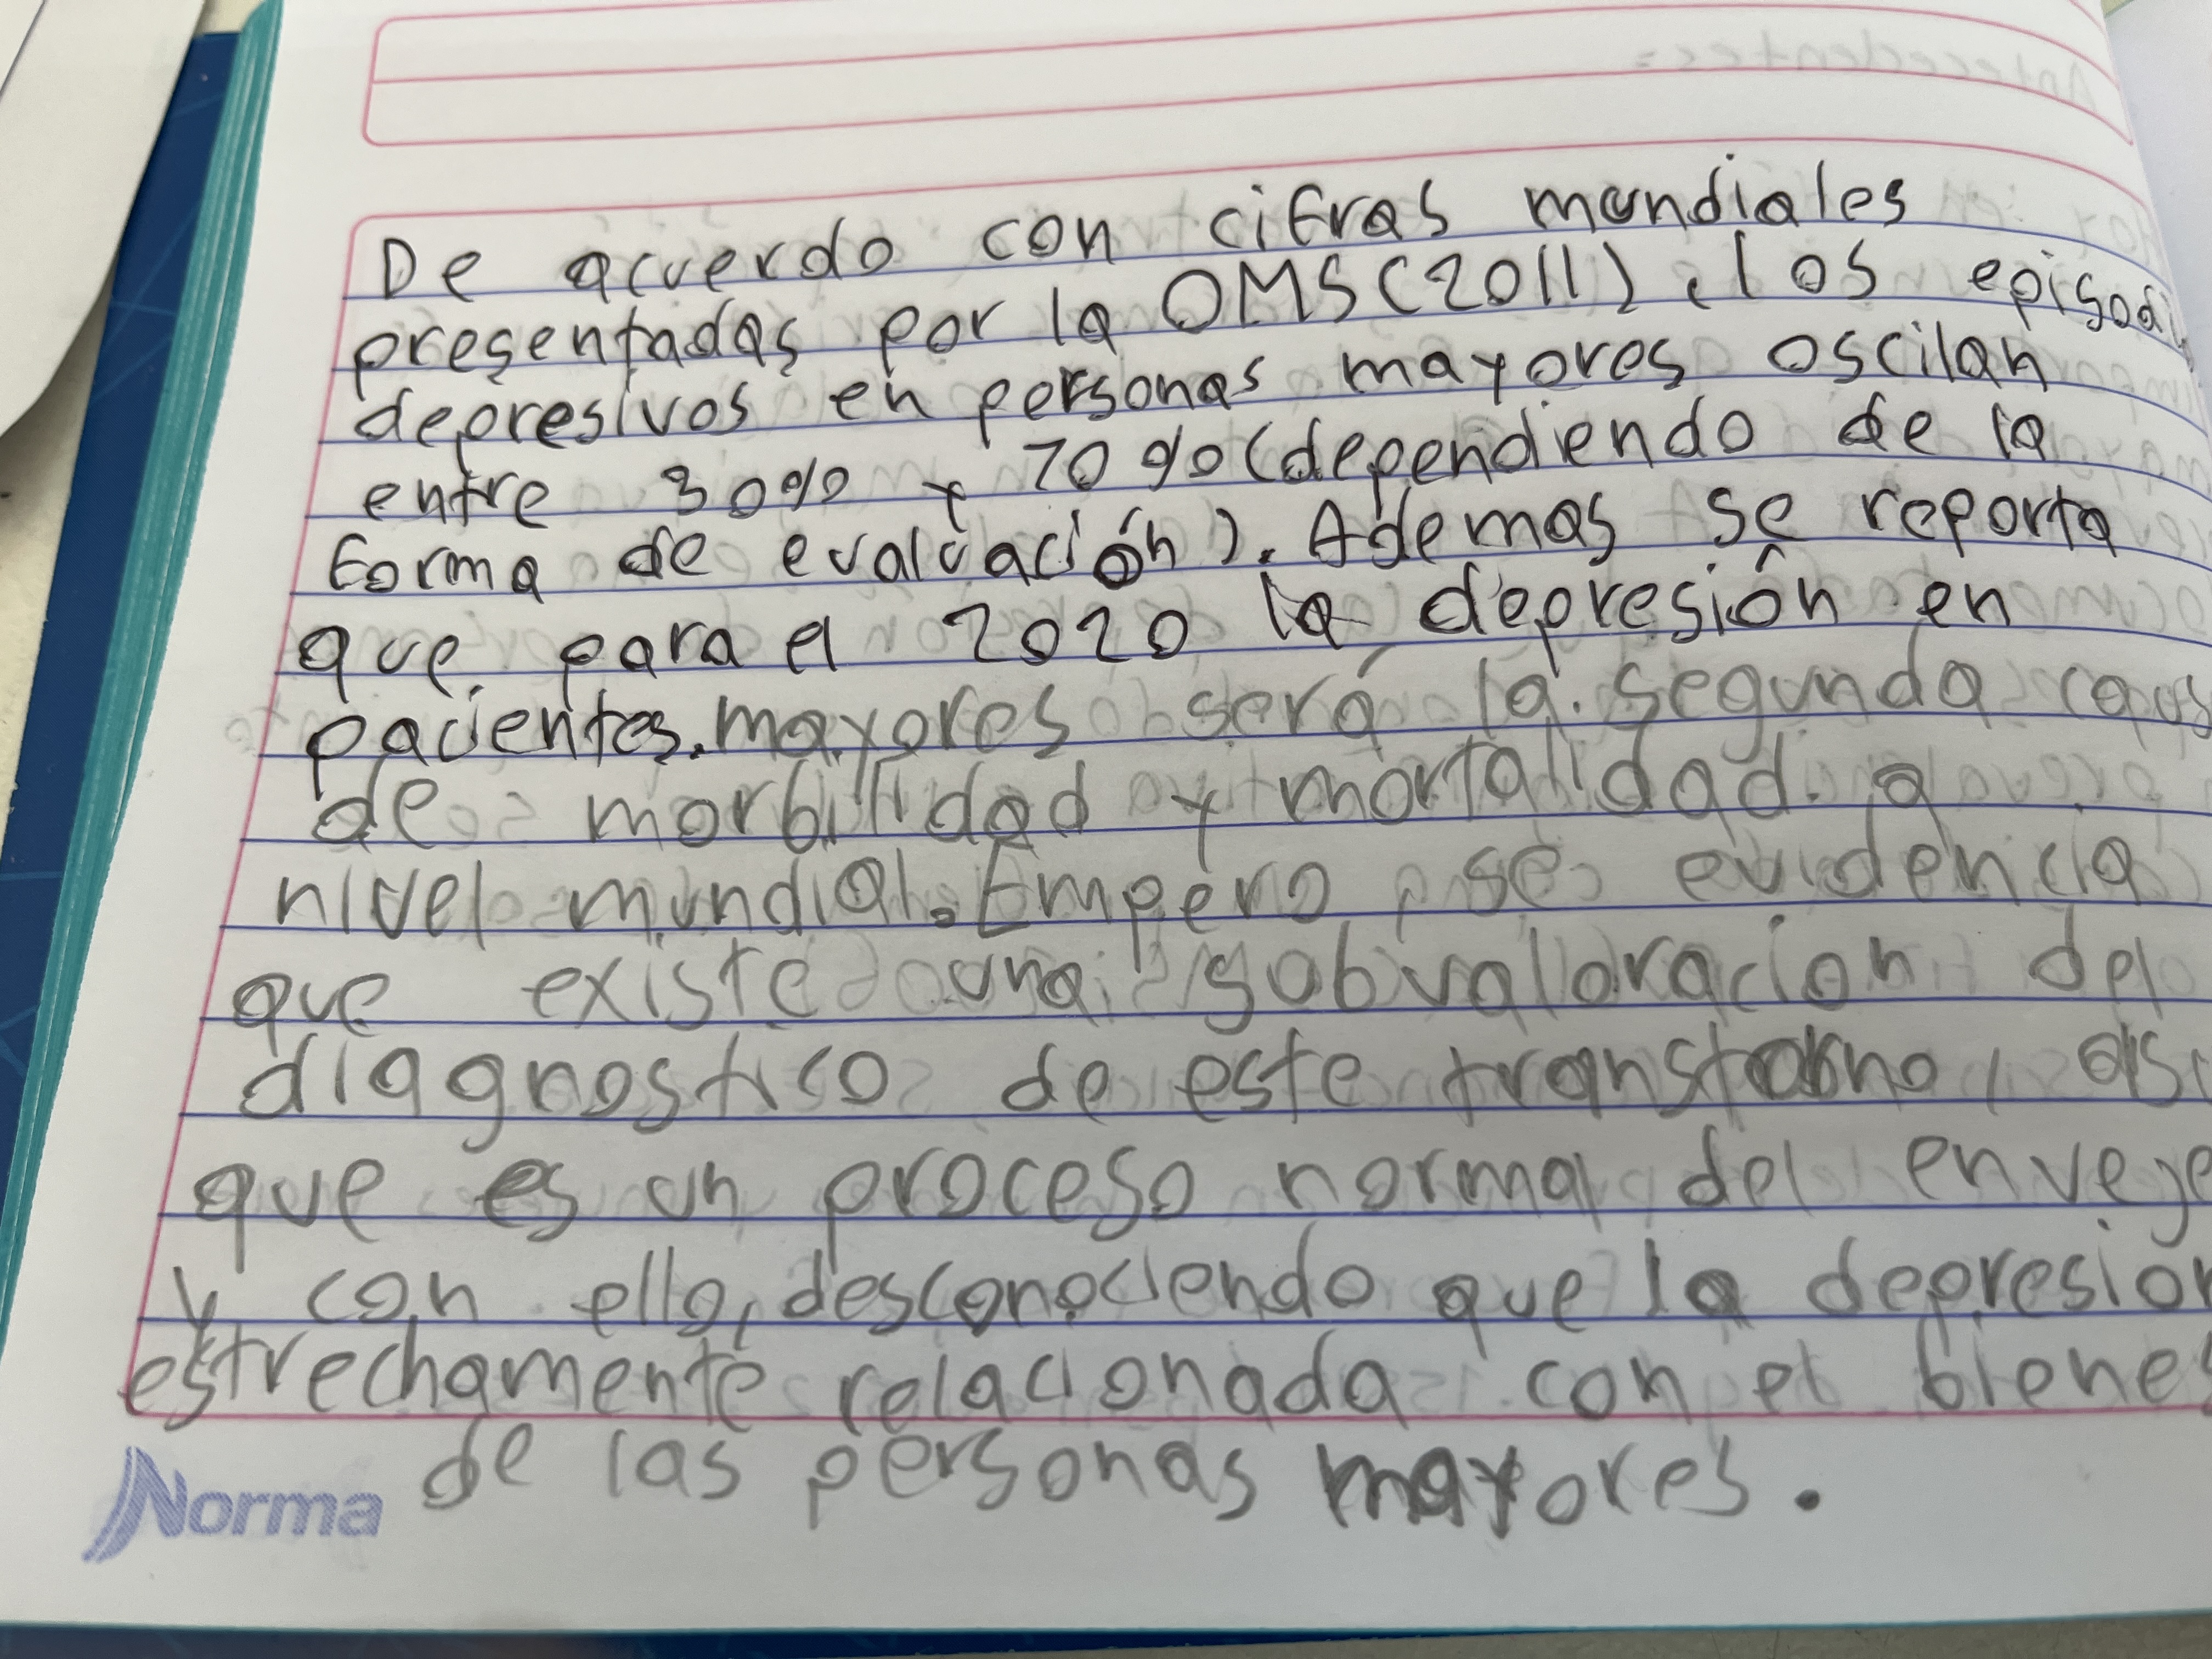 De acuerdo con cifras mundiales
presentadas por la OMS(2011), los episodi
depresivos en personas mayores oscilan
entre 30% y 70%(dependiendo de la
forma de evaluación). Ademas se reporta
que para el 2020 la depresión en
pacientes mayores será la segunda caus
de morbilidad y mortalidad a
nivel mundial. Empero, se evidencia
que existe una subvalloracion del
diagnostico de este transtorno, as
que es un proceso normal del enveje
y con ello, desconociendo que la depresion
estrechamente relacionada con el bienes
de las personas mayores.
Norma
Antecedentes